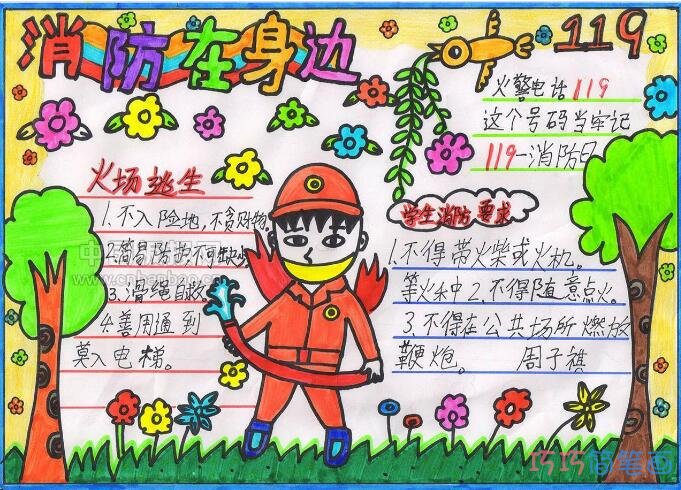 消防在身边
119
火警电话119
这个号码当牢记
119-消防日
火场逃生
1.不入险地,不贪财物。
2.简易防护不可缺少
3.滑绳自救
4.善周通到
莫入电梯。
学生消防要求
1.不得带火柴或火机。
等火种2.不得随意点火。
3.不得在公共场所燃放
鞭炮。 周子祺
巧巧简笔画